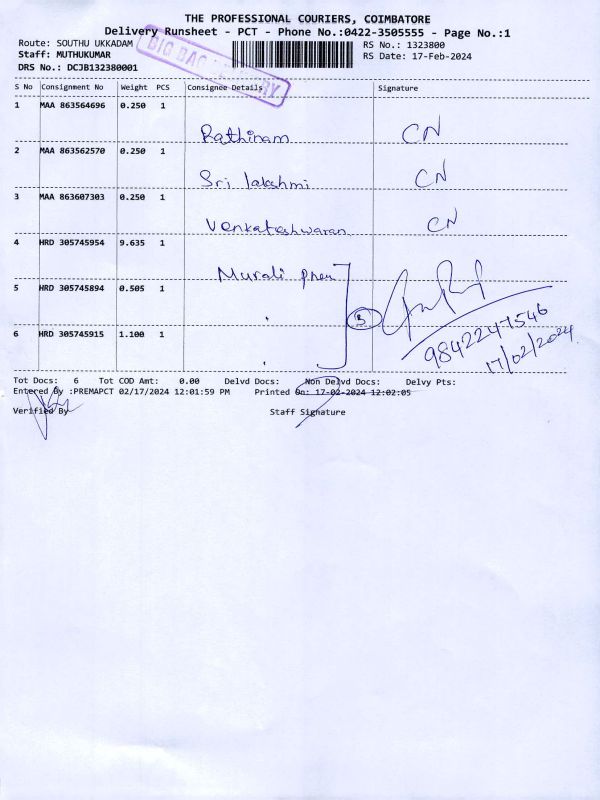 THE PROFESSIONAL COURIERS, COIMBATORE
Delivery Runsheet - PCT - Phone No.:0422-3505555 - Page No.:1
Route: SOUTHU UKKADAM
RS No.: 1323800
Staff: MUTHUKUMAR
RS Date: 17-Feb-2024
DRS No.: DCJB132380001
BIG BAG
S No Consignment No Weight PCS Consignee Details Signature
1 MAA 863564696 0.250 1
Rathinam CN
2 MAA 863562570 0.250 1
Sri lakshmi CN
3 MAA 863607303 0.250 1
Venkateshwaran CN
4 HRD 305745954 9.635 1
Murali
5 HRD 305745894 0.505 1
3
9842247546
6 HRD 305745915 1.100 1
17/02/2024
Tot Docs: 6 Tot COD Amt: 0.00 Delvd Docs: Non Delvd Docs: Delvy Pts:
Entered By :PREMAPCT 02/17/2024 12:01:59 PM Printed On: 17-02-2024 12:02:05
Verified By Staff Signature